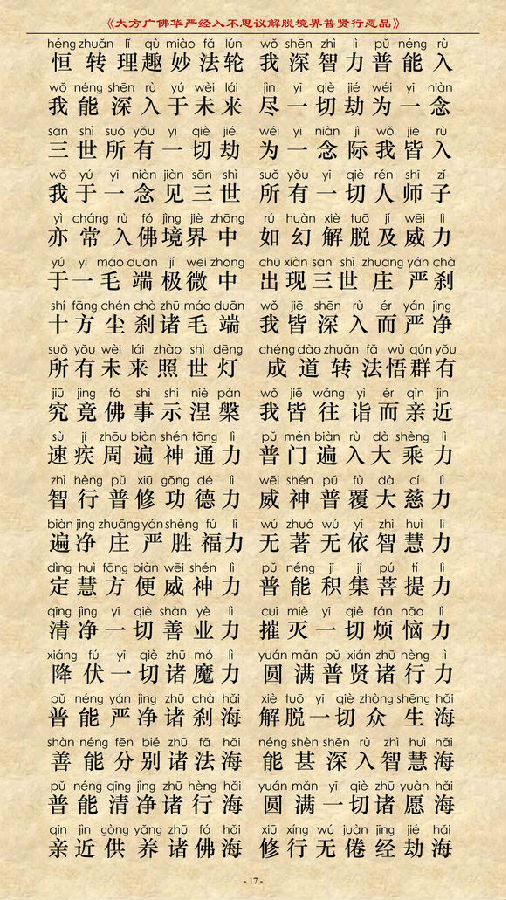 《大方广佛华严经入不思议解脱境界普贤行愿品》
héng zhuǎn lǐ qù miào fǎ lún wǒ shēn zhì lì pǔ néng rù
恒转理趣妙法轮 我深智力普能入
wǒ néng shēn rù yú wèi lái jìn yí qiè jié wéi yí niàn
我能深入于未来 尽一切劫为一念
sān shì suǒ yǒu yí qiè jié wéi yí niàn jì wǒ jiē rù
三世所有一切劫 为一念际我皆入
wǒ yú yí niàn jiàn sān shì suǒ yǒu yí qiè rén shī zǐ
我于一念见三世 所有一切人师子
yì cháng rù fó jìng jiè zhōng rú huàn xiè tuō jí wēi lì
亦常入佛境界中 如幻解脱及威力
yú yì máo duān jí wēi zhōng chū xiàn sān shì zhuāng yán chà
于一毛端极微中 出现三世庄严刹
shí fāng chén chà zhū máo duān wǒ jiē shēn rù ér yán jìng
十方尘刹诸毛端 我皆深入而严净
suǒ yǒu wèi lái zhào shì dēng chéng dào zhuǎn fǎ wù qún yǒu
所有未来照世灯 成道转法悟群有
jiū jìng fó shì shì niè pán wǒ jiē wǎng yì ér qīn jìn
究竟佛事示涅槃 我皆往诣而亲近
sù jí zhōu biàn shén tōng lì pǔ mén biàn rù dà shèng lì
速疾周遍神通力 普门遍入大乘力
zhì hèng pǔ xiū gōng dé lì wēi shén pǔ fù dà cí lì
智行普修功德力 威神普覆大慈力
biàn jìng zhuāng yán shèng fú lì wú zhuó wú yī zhì huì lì
遍净庄严胜福力 无著无依智慧力
dìng huì fāng biàn wēi shén lì pǔ néng jī jí pú tí lì
定慧方便威神力 普能积集菩提力
qīng jìng yí qiè shàn yè lì cuī miè yí qiè fán nǎo lì
清净一切善业力 摧灭一切烦恼力
xiáng fú yí qiè zhū mó lì yuán mǎn pǔ xián zhū hèng lì
降伏一切诸魔力 圆满普贤诸行力
pǔ néng yán jìng zhū chà hǎi xiè tuō yí qiè zhòng shēng hǎi
普能严净诸刹海 解脱一切众生海
shàn néng fēn bié zhū fǎ hǎi néng shèn shēn rù zhì huì hǎi
善能分别诸法海 能甚深入智慧海
pǔ néng qīng jìng zhū hèng hǎi yuán mǎn yí qiè zhū yuàn hǎi
普能清净诸行海 圆满一切诸愿海
qīn jìn gòng yǎng zhū fó hǎi xiū xíng wú juàn jīng jié hǎi
亲近供养诸佛海 修行无倦经劫海
- 17 -